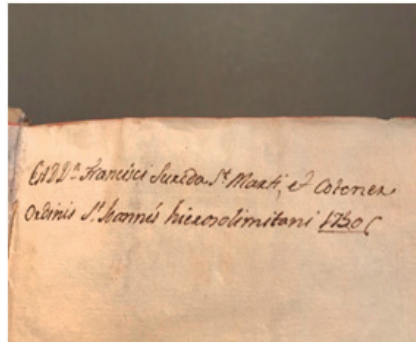 Est D.D.ⁿ Francisci Sureda S.ᵗ Marti, et Cotoner
Ordinis S.ᵗ Joannis hierosolimitani 1730